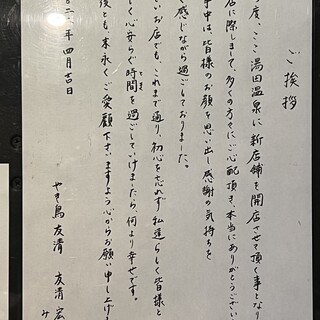 ご挨拶
度、ここ湯田温泉に新店舗を開店させて頂く事となり
店に際しまして、多くの方々にご心配頂き、本当にありがとうござい
中は、皆様のお顔を思い出し感謝の気持ちを
感じながら過ごしておりました。
いお店でも、これまで通り、初心を忘れず私達らしく皆様と
しく心安らぐ時間を過ごしていけましたら、何より幸せです。
後とも、末永くご愛顧下さいますよう心からお願い申し上げ
年四月吉日
やき鳥友清 友清
み